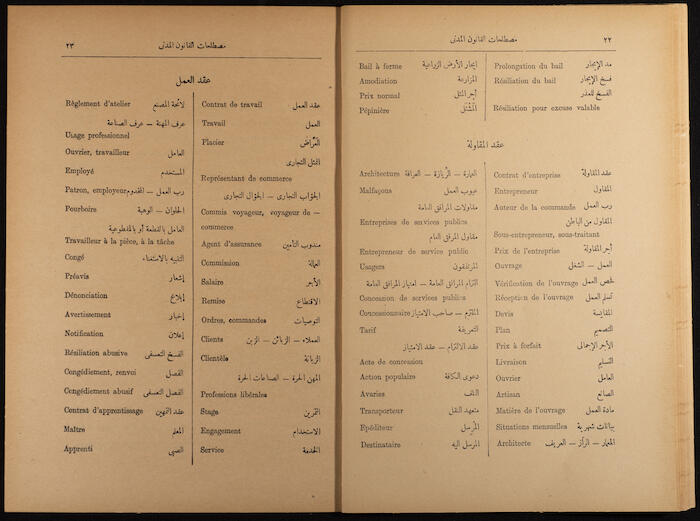 ٢٢
مصطلحات القانون المدنى
Prolongation du bail مد الإيجار
Résiliation du bail فسخ الإيجار
الفسخ للعذر
Résiliation pour excuse valable
Bail à ferme ايجار الأرض الزراعية
Amodiation المزارعة
Prix normal أجر المثل
Pépinière المَشْتَل
عقد المقاولة
Contrat d'entreprise عقد المقاولة
Entrepreneur المقاول
Auteur de la commande رب العمل
المقاول من الباطن
Sous-entrepreneur, sous-traitant
Prix de l'entreprise أجر المقاولة
Ouvrage العمل — الشغل
Vérification de l'ouvrage فحص العمل
Réception de l'ouvrage تسلم العمل
Devis المقايسة
Plan التصميم
Prix à forfait الأجر الإجمالى
Livraison التسليم
Ouvrier العامل
Artisan الصانع
Matière de l'ouvrage مادة العمل
Situations mensuelles بيانات شهرية
Architecte المعمار — الراز — العريف
Architecture العمارة — الريازة — العرافة
Malfaçons عيوب العمل
مقاولات المرافق العامة
Entreprises de services publics
مقاول المرفق العام
Entrepreneur de service public
Usagers المرتفقون
التزام المرافق العامة — امتياز المرافق العامة
Concession de services publics
Concessionnaire الملتزم — صاحب الامتياز
Tarif التعريفة
عقد الالتزام — عقد الامتياز
Acte de concession
Action populaire دعوى الكافة
Avaries التلف
Transporteur متعهد النقل
Epéditeur المُرسِل
Destinataire المرسل اليه
٢٣
مصطلحات القانون المدنى
عقد العمل
Contrat de travail عقد العمل
Travail العمل
Placier العرَّاض
الممثل التجارى
Représentant de commerce
الجوّاب التجارى — الجوّال التجارى
Commis voyageur, voyageur de —
commerce
Agent d'assurance مندوب التأمين
Commission العمالة
Salaire الأجر
Remise الاقتطاع
Ordres, commandes التوصيات
Clients العملاء — الزبائن — الزبن
Clientèle الزبانة
المهن الحرة — الصناعات الحرة
Professions libérales
Stage التمرين
Engagement الاستخدام
Service الخدمة
Règlement d'atelier لائحة المصنع
عرف المهنة — عرف الصناعة
Usage professionnel
Ouvrier, travailleur العامل
Employé المستخدم
Patron, employeur رب العمل — المخدوم
Pourboire الحلوان — الوهبة
العامل بالقطعة أو بالمقطوعية
Travailleur à la pièce, à la tâche
Congé التنبيه بالاستغناء
Préavis إشعار
Dénonciation إبلاغ
Avertissement إخبار
Notification إعلان
Résiliation abusive الفسخ التعسفى
Congédiement, renvoi الفصل
Congédiement abusif الفصل التعسفى
Contrat d'apprentissage عقد التمهين
Maître المعلم
Apprenti الصبى